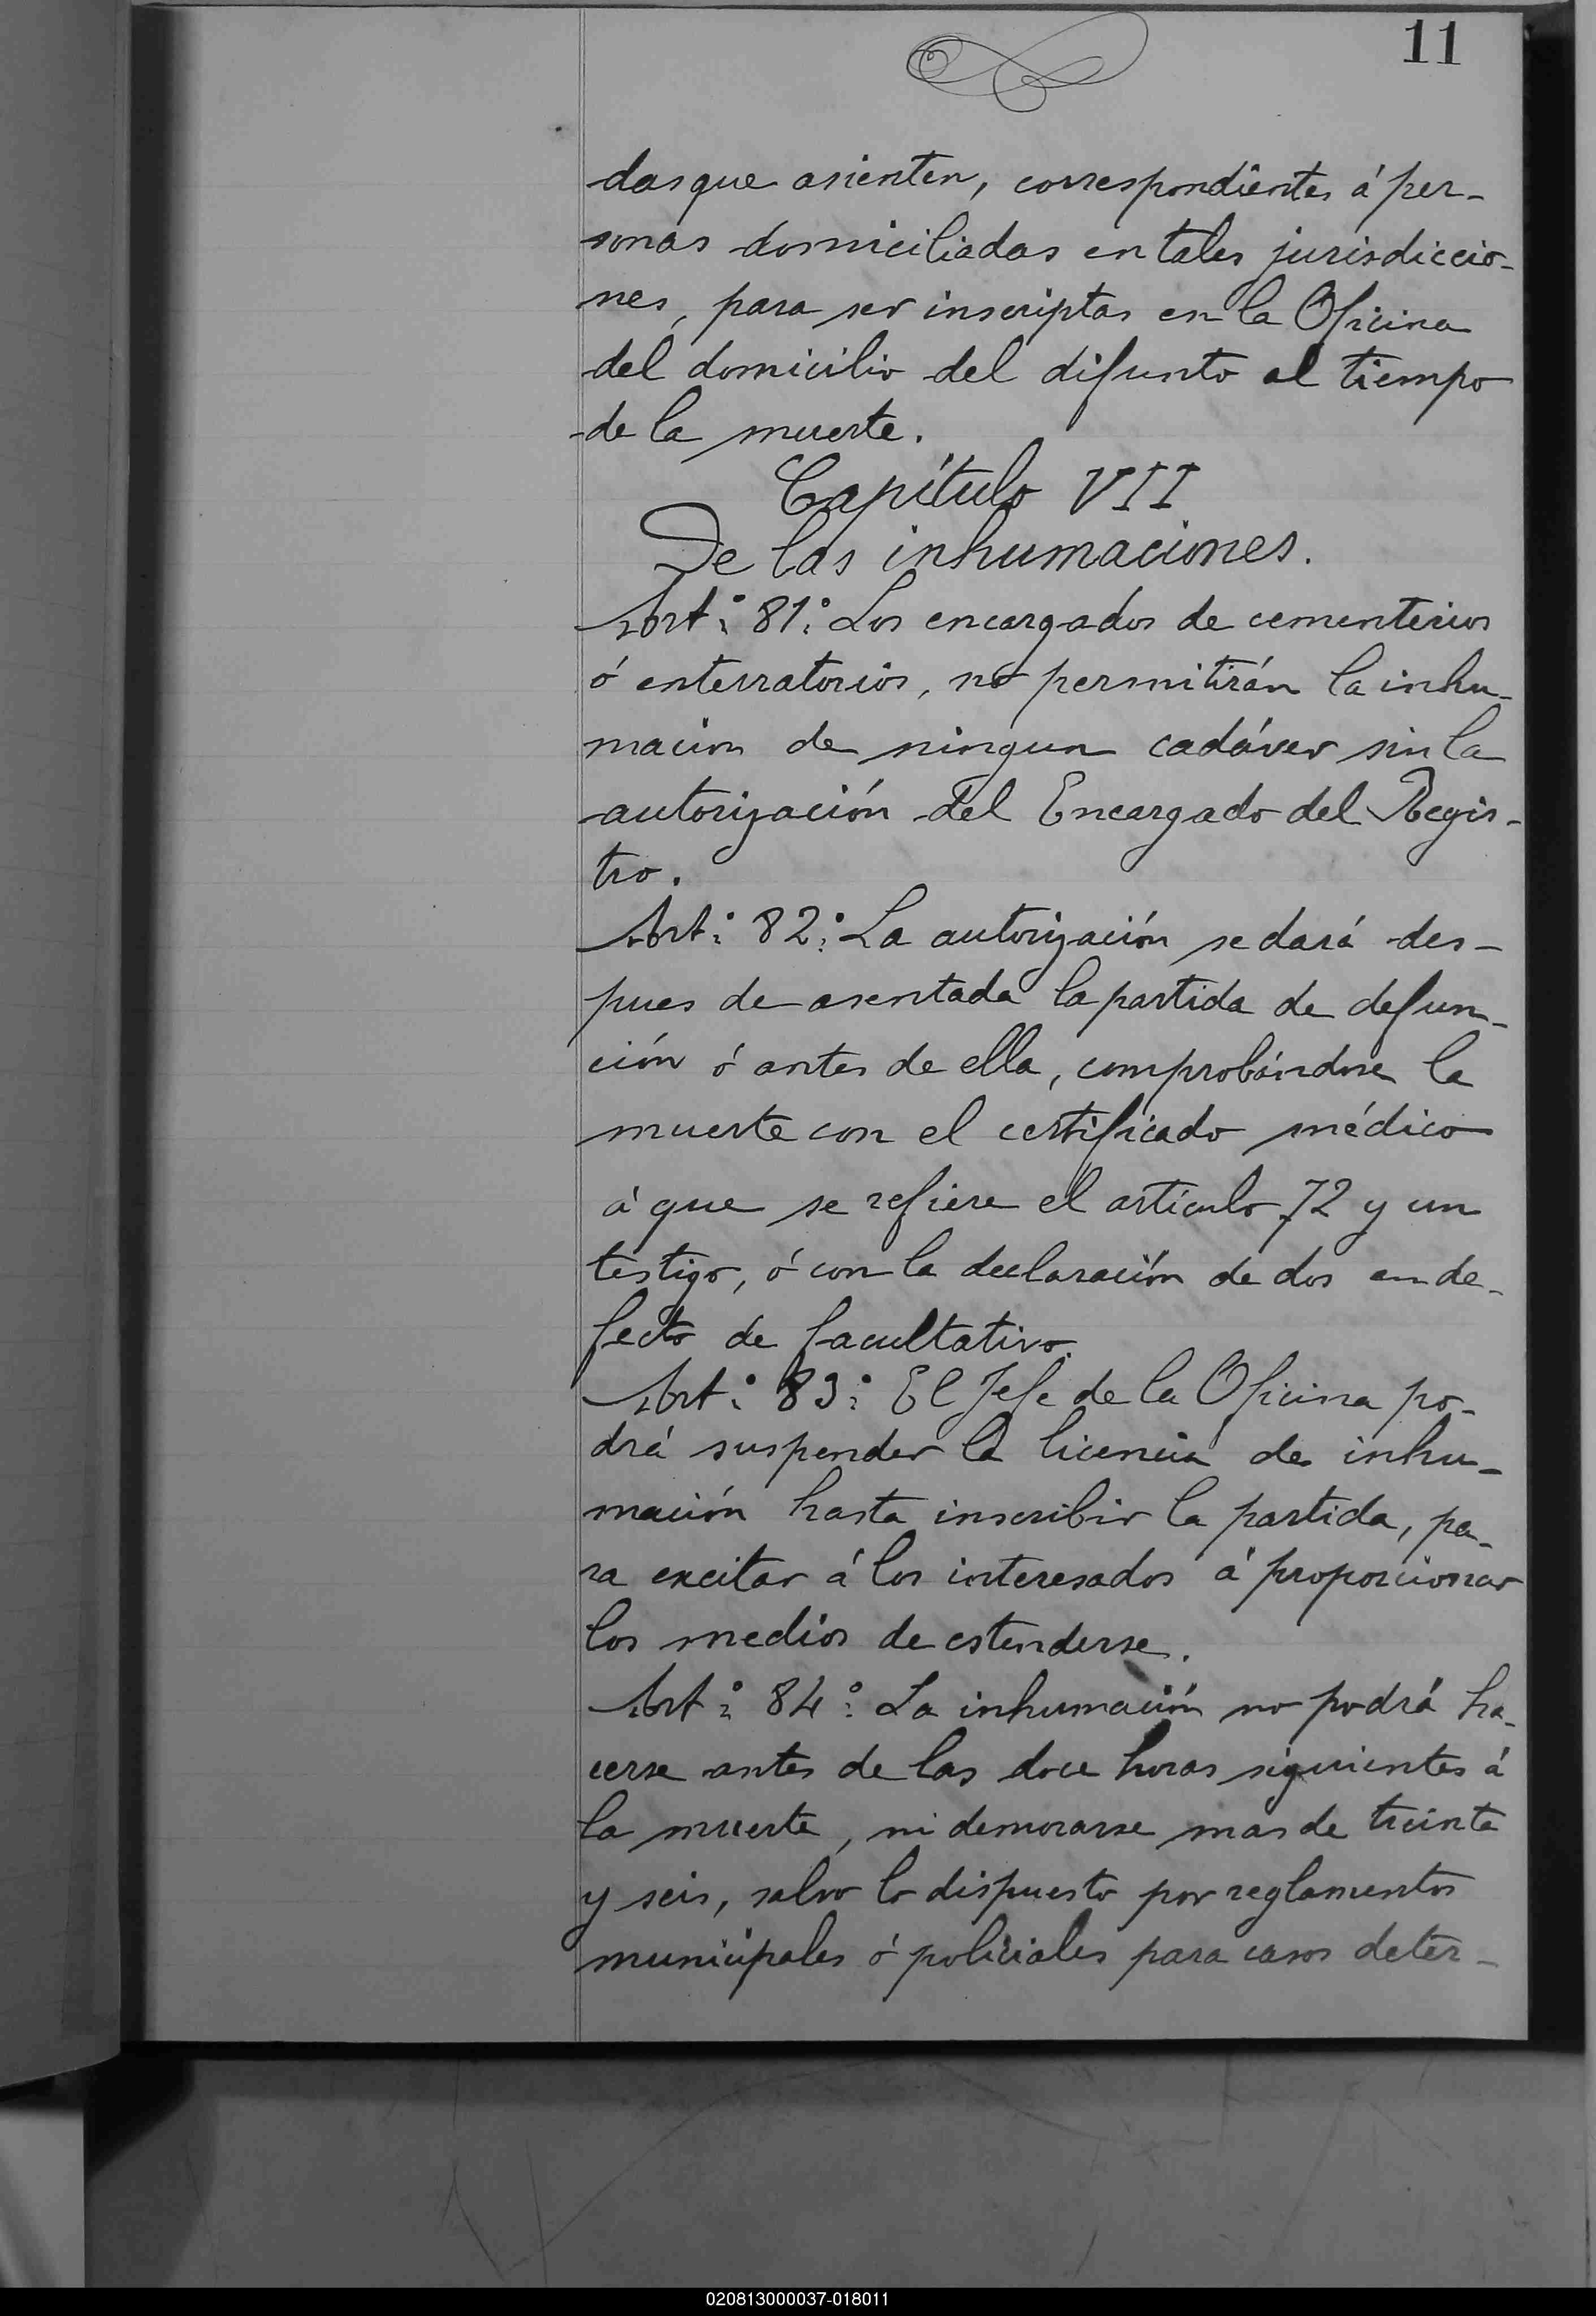 11
das que asienten, correspondientes á per-
sonas domiciliadas en tales jurisdiccio-
nes, para ser inscriptas en la Oficina
del domicilio del difunto al tiempo
de la muerte.
Capítulo VII
De las inhumaciones.
Art.º 81.º Los encargados de cementerios
ó enterratorios, no permitirán la inhu-
macion de ningun cadáver sin la
autorización del Encargado del Regis-
tro.
Art.º 82.º La autorización se dará des-
pues de asentada la partida de defun-
ción ó antes de ella, comprobándose la
muerte con el certificado médico
á que se refiere el artículo 72 y un
testigo, ó con la declaración de dos en de-
fecto de facultativo.
Art.º 83.º El Jefe de la Oficina po-
drá suspender la licencia de inhu-
mación hasta inscribir la partida, pa-
ra excitar á los interesados á proporcionar
los medios de estenderse.
Art.º 84.º La inhumación no podrá ha-
cerse antes de las doce horas siguientes á
la muerte, ni demorarse mas de treinta
y seis, salvo lo dispuesto por reglamentos
municipales ó policiales para casos deter-
020813000037-018011